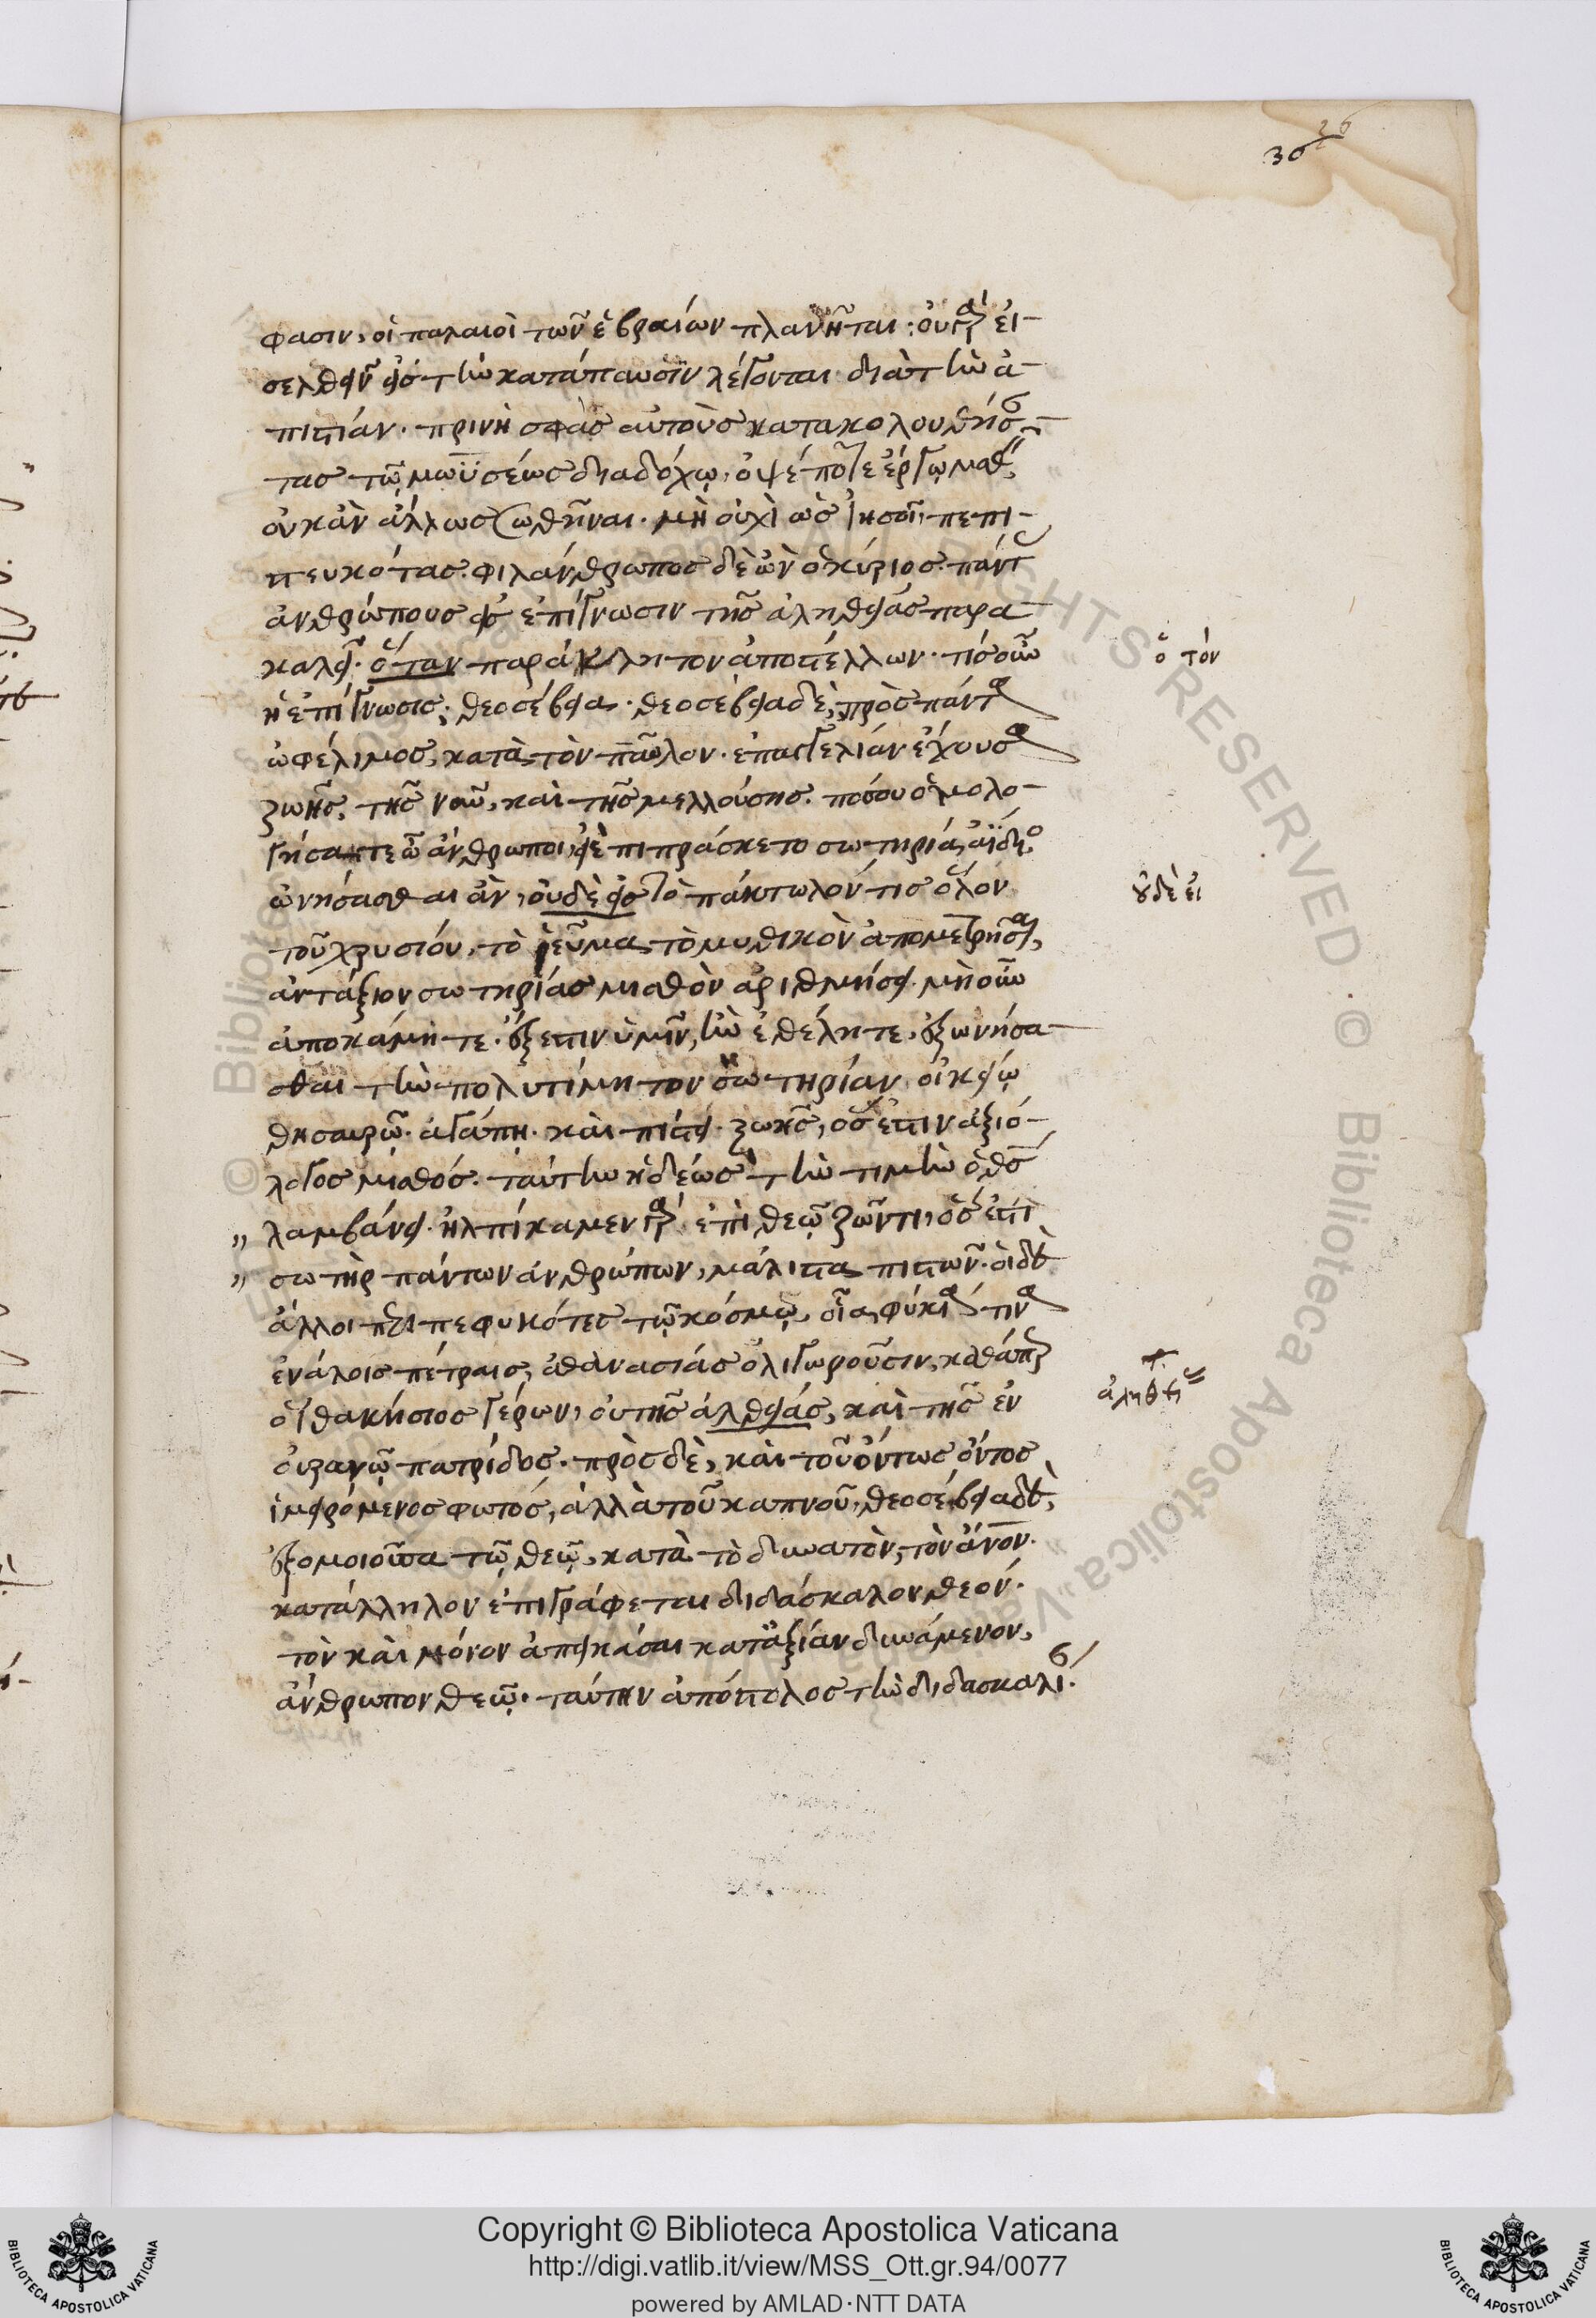 30 26
φασιν, οἱ παλαιοὶ τῶν ἑβραίων πλανῆται· οὐ γὰρ εἰ-
σελθεῖν εἰς τὴν κατάπαυσιν λέγονται διὰ τὴν ἀ-
πιστίαν. πρινὴ σφᾶς αὐτοὺς κατακολουθήσαν-
τας τῷ μωϋσέως διαδόχῳ, ὀψέ ποτε ἔργῳ μαθεῖν,
οὐκ ἂν ἄλλως σωθῆναι. μὴ οὐχὶ ὡς ἰησοῦ πεπι-
στευκότας. φιλάνθρωπος δὲ ὢν ὁ κύριος. πάντας
ἀνθρώπους εἰς ἐπίγνωσιν τῆς ἀληθείας παρα-
καλεῖ. ὅταν παράκλητον ἀποστέλλων. τίς οὖν
ἡ ἐπίγνωσις; θεοσέβεια. θεοσέβεια δὲ, πρὸς πάντα
ὠφέλιμος, κατὰ τὸν παῦλον. ἐπαγγελίαν ἔχουσα
ζωῆς, τῆς νῦν, καὶ τῆς μελλούσης. πόσου ὁμολο-
γήσατε ὦ ἄνθρωποι, εἰ ἐπιπράσκετο σωτηρία ἀΐδιος
ὠνήσασθαι ἄν, οὐδὲ εἰς τὸ πακτωλόν τις ὅλον
τοῦ χρυσίου, τὸ ῥεῦμα τὸ μυθικὸν ἀπομετρήσαι,
ἀντάξιον σωτηρίας μισθὸν ἀριθμήσει. μὴ οὖν
ἀποκάμητε. ἔξεστιν ὑμῖν, ἢν ἐθέλητε, ἐξωνήσα-
σθαι τὴν πολυτίμητον σωτηρίαν, οἰκείῳ
θησαυρῷ. ἀγάπῃ. καὶ πίστει. ζωῆς, ὅς ἐστιν ἀξιό-
λογος μισθός. ταύτην ἡδέως τὴν τιμὴν ὁ θς
„ λαμβάνει. ἠλπίκαμεν γὰρ ἐπὶ θεῷ ζῶντι, ὅς ἐστι
„ σωτὴρ πάντων ἀνθρώπων, μάλιστα πιστῶν. οἱ δὲ
ἄλλοι περιπεφυκότες τῷ κόσμῳ, οἷα φύκιά τινα
ἐνάλοις πέτραις, ἀθανασίας ὀλιγωροῦσιν, καθάπερ
ὁ ἰθακήσιος γέρων, οὐ τῆς ἀλθείας, καὶ τῆς ἐν
οὐρανῷ πατρίδος. πρὸς δὲ, καὶ τοῦ ὄντως ὄντος
ἱμειρόμενος φωτός, ἀλλὰ τοῦ καπνοῦ, θεοσέβεια δὲ,
ἐξομοιοῦσα τῷ θεῷ, κατὰ τὸ δυνατὸν, τὸν ἄνον.
κατάλληλον ἐπιγράφεται διδάσκαλον θεόν.
τὸν καὶ μόνον ἀπεικάσαι κατ᾽ ἀξίαν δυνάμενον,
ἄνθρωπον θεῷ. ταύτην ἀπόστολος τὴν διδασκαλί.
ὃ τὸν
οὐδὲ εἰ
ἀληθεί
Copyright © Biblioteca Apostolica Vaticana
http://digi.vatlib.it/view/MSS_Ott.gr.94/0077
powered by AMLAD·NTT DATA
BIBLIOTECA APOSTOLICA VATICANA
BIBLIOTECA APOSTOLICA VATICANA